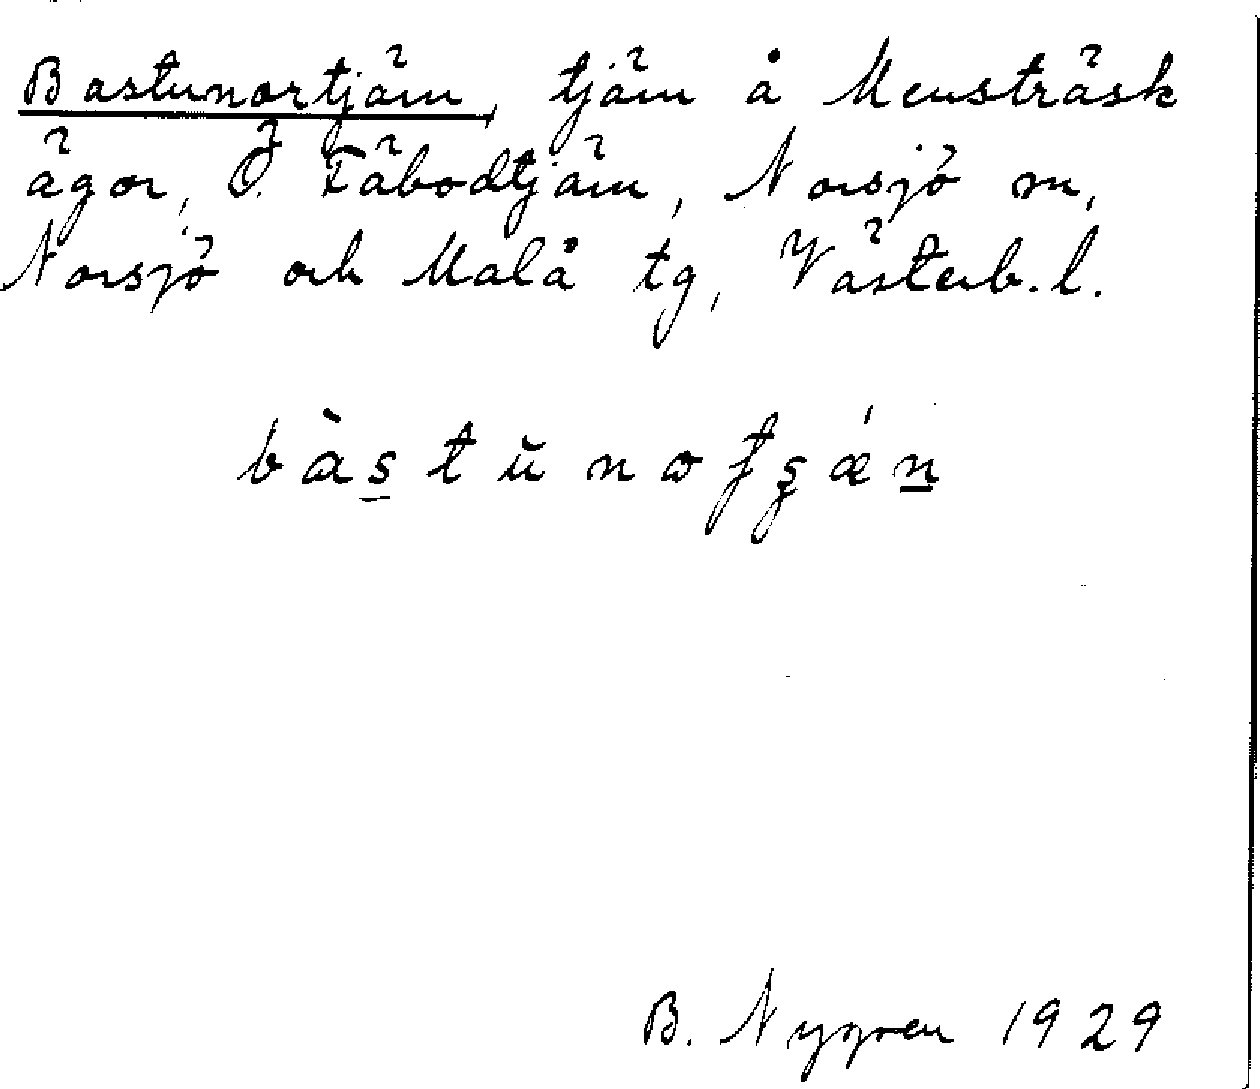 Bastunortjärn, tjärn å Mensträsk
ägor, Ö. Fäbodtjärn, Norsjö sn,
Norsjö och Malå tg, Västerb. l.
B. Nygren 1929